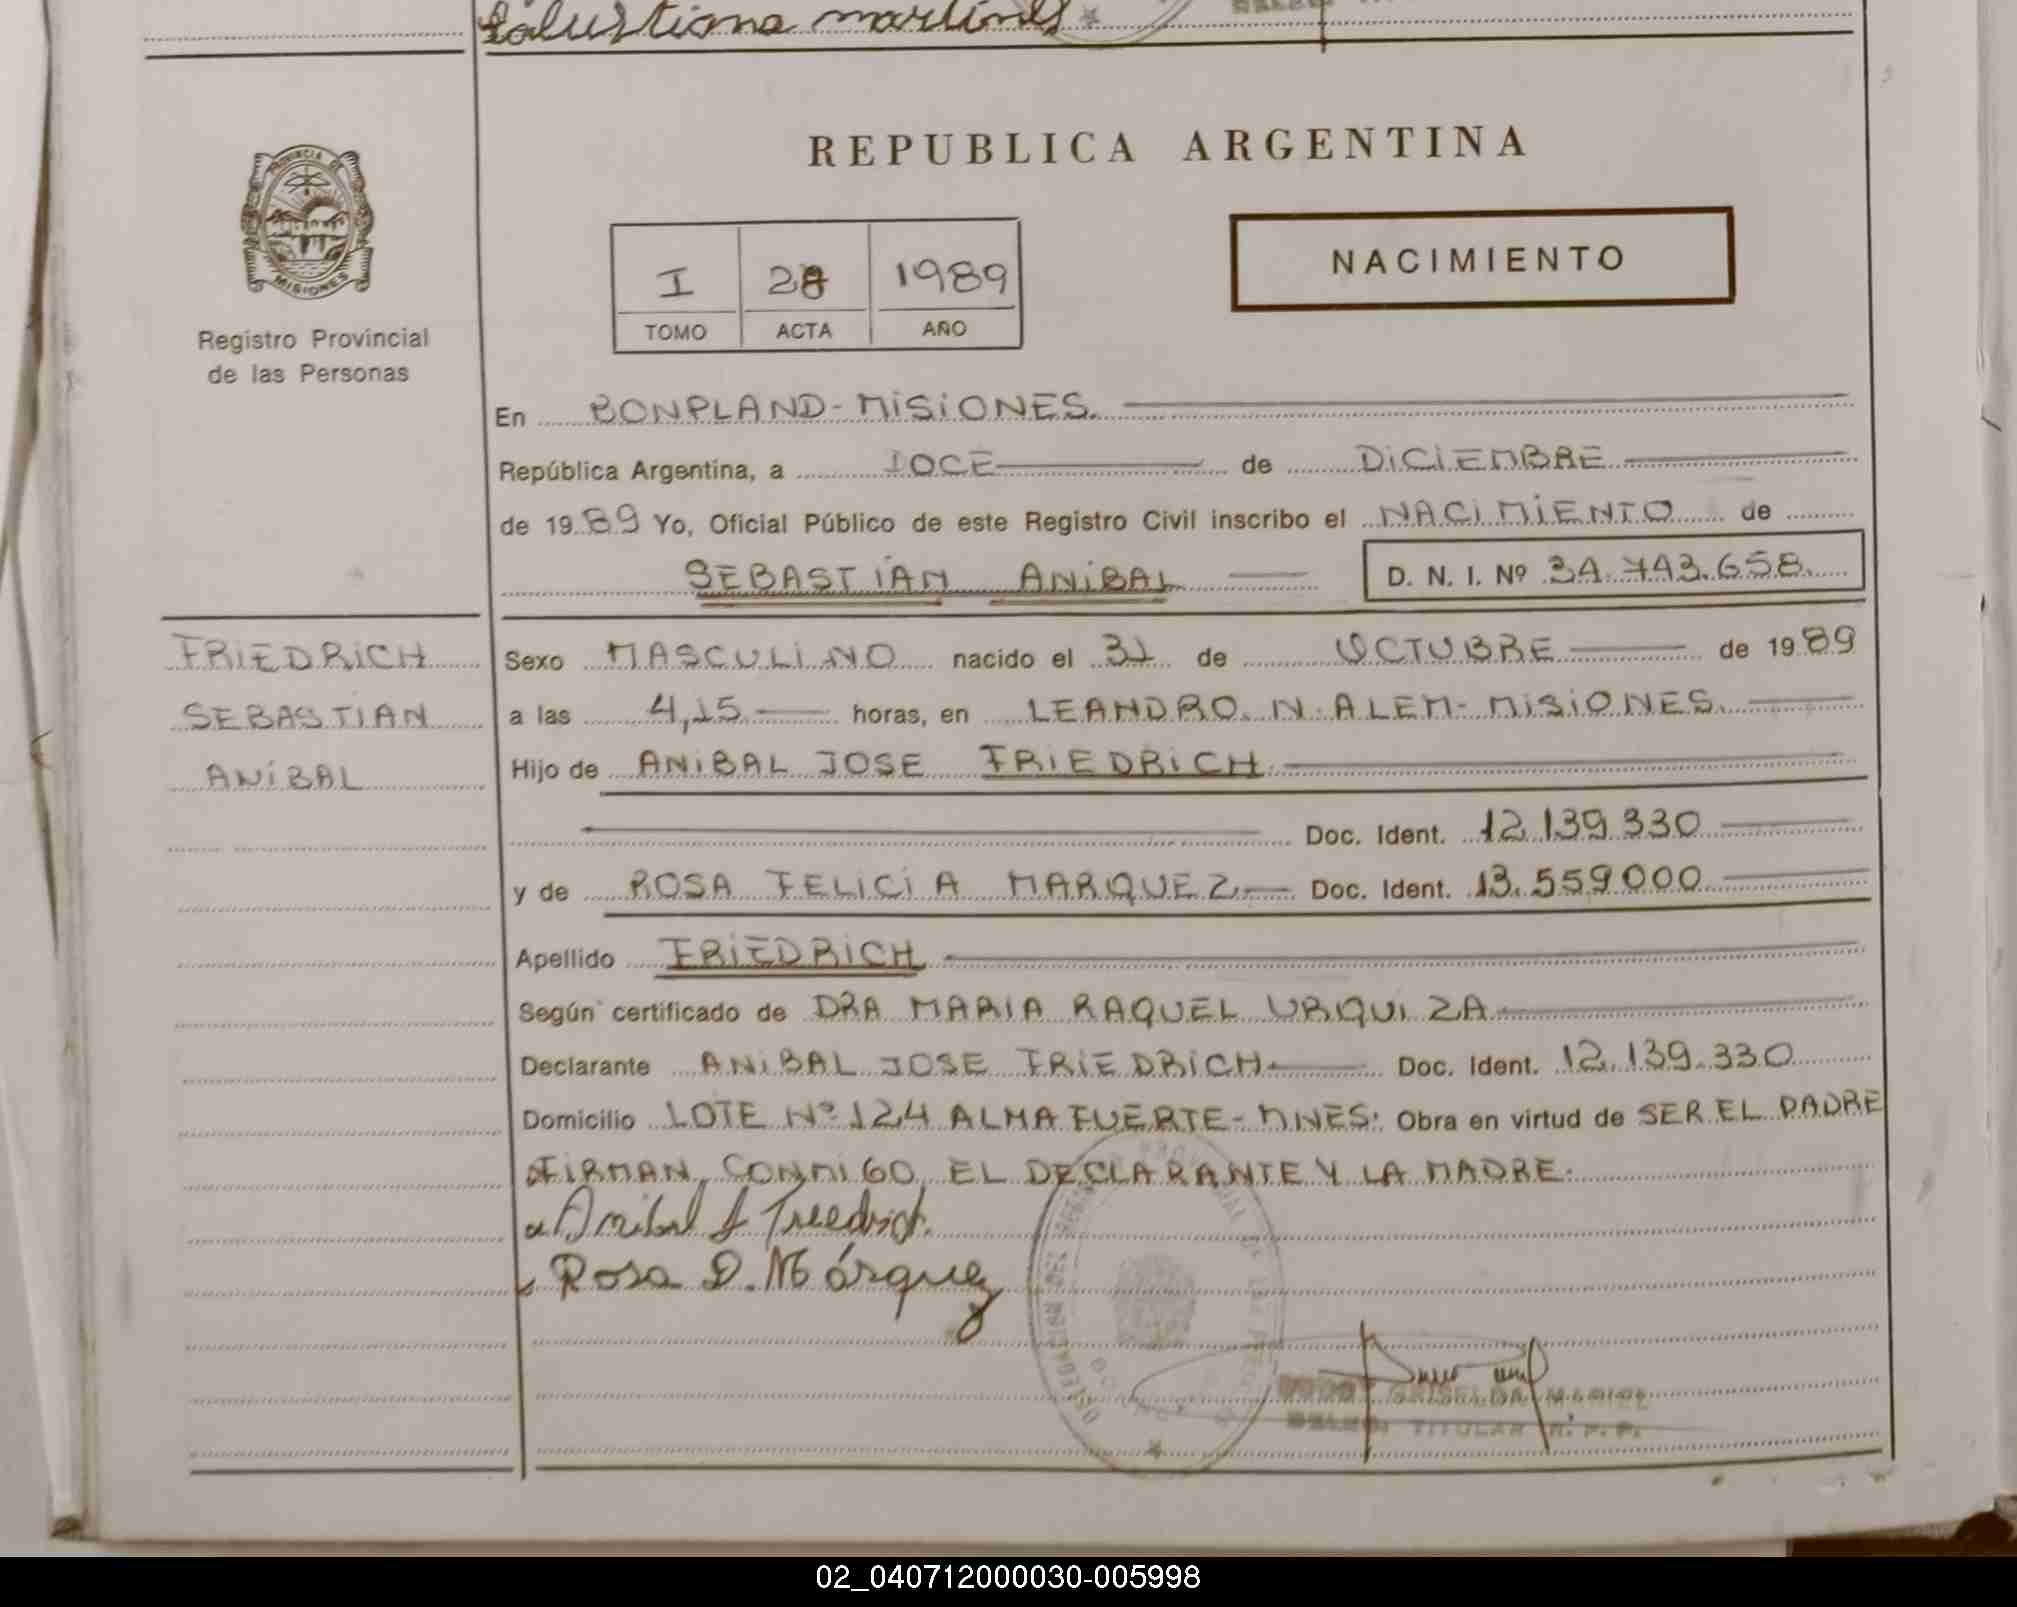 Salustiana martines
REPUBLICA ARGENTINA
PROVINCIA DE
MISIONES
Registro Provincial
de las Personas
I
28
1989
TOMO
ACTA
AÑO
NACIMIENTO
En BONPLAND-MISIONES.
República Argentina, a DOCE de DICIEMBRE
de 1989 Yo, Oficial Público de este Registro Civil inscribo el NACIMIENTO de
SEBASTIAN ANIBAL D. N. I. Nº 34.743.658.
FRIEDRICH
SEBASTIAN
ANIBAL
Sexo MASCULINO nacido el 31 de OCTUBRE de 1989
a las 4,15 horas, en LEANDRO. N. ALEM- MISIONES.
Hijo de ANIBAL JOSE FRIEDRICH
Doc. Ident. 12.139.330
y de ROSA FELICIA MARQUEZ Doc. Ident. 13.559000
Apellido FRIEDRICH
Según certificado de DRA MARIA RAQUEL URQUIZA
Declarante ANIBAL JOSE FRIEDRICH Doc. Ident. 12.139.330
Domicilio LOTE Nº 124 ALMA FUERTE- MNES: Obra en virtud de SER EL PADRE
FIRMAN CONMIGO EL DECLARANTE Y LA MADRE.
Anibal J Friedrich.
Rosa D. Márquez
GRISELDA MABEL
TITULAR R. P. P.
02_040712000030-005998